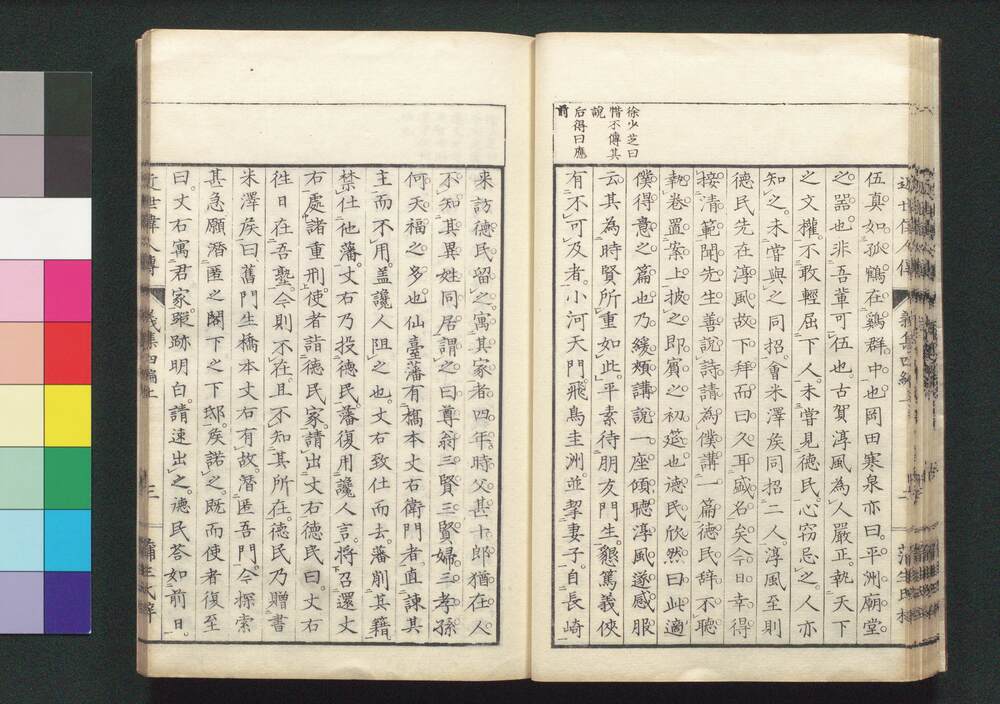 徐少芝曰
惜不傳其
說
后得曰應
前
伍真如孤鶴在鷄群中也岡田寒泉亦曰平洲廟堂
之器也非吾輩可伍也古賀淳風為人嚴正執天下
之文權不敢輕屈下人未嘗見德民心窃忌之人亦
知之未嘗與之同招會米澤侯同招二人淳風至則
德民先在淳風故下拜而曰久耳盛名矣今日幸得
接清範聞先生善說詩請為僕講一篇德民辞不聽
執卷置案上披之即賓之初筵也德民欣然曰此適
僕得意之篇也乃緩頰講說一座傾聽淳風遂感服
云其為時賢所重如此平素待朋友門生懇篤義俠
有不可及者小河天門飛鳥圭洲並挈妻子自長崎
来訪德民留之寓其家者四年時父甚十郎猶在人
不知其異姓同居謂之曰尊翁三賢三賢婦三孝孫
何天福之多也仙臺藩有橋本丈右衛門者直諫其
主而不用盖讒人阻之也丈右致仕而去藩削其籍
禁仕他藩丈右乃投德民藩復用讒人言将召還丈
右處諸重刑使者詣德民家請出丈右德民曰丈右
徃日在吾塾今則不在且不知其所在德民乃贈書
米澤侯曰舊門生橋本丈右有故潛匿吾門今探索
甚急願潛匿之閣下之下邸侯諾之既而使者復至
曰丈右寓君家蹤跡明白請速出之德民答如前日
近世偉人傳
義集四編上
三
蒲生氏梓